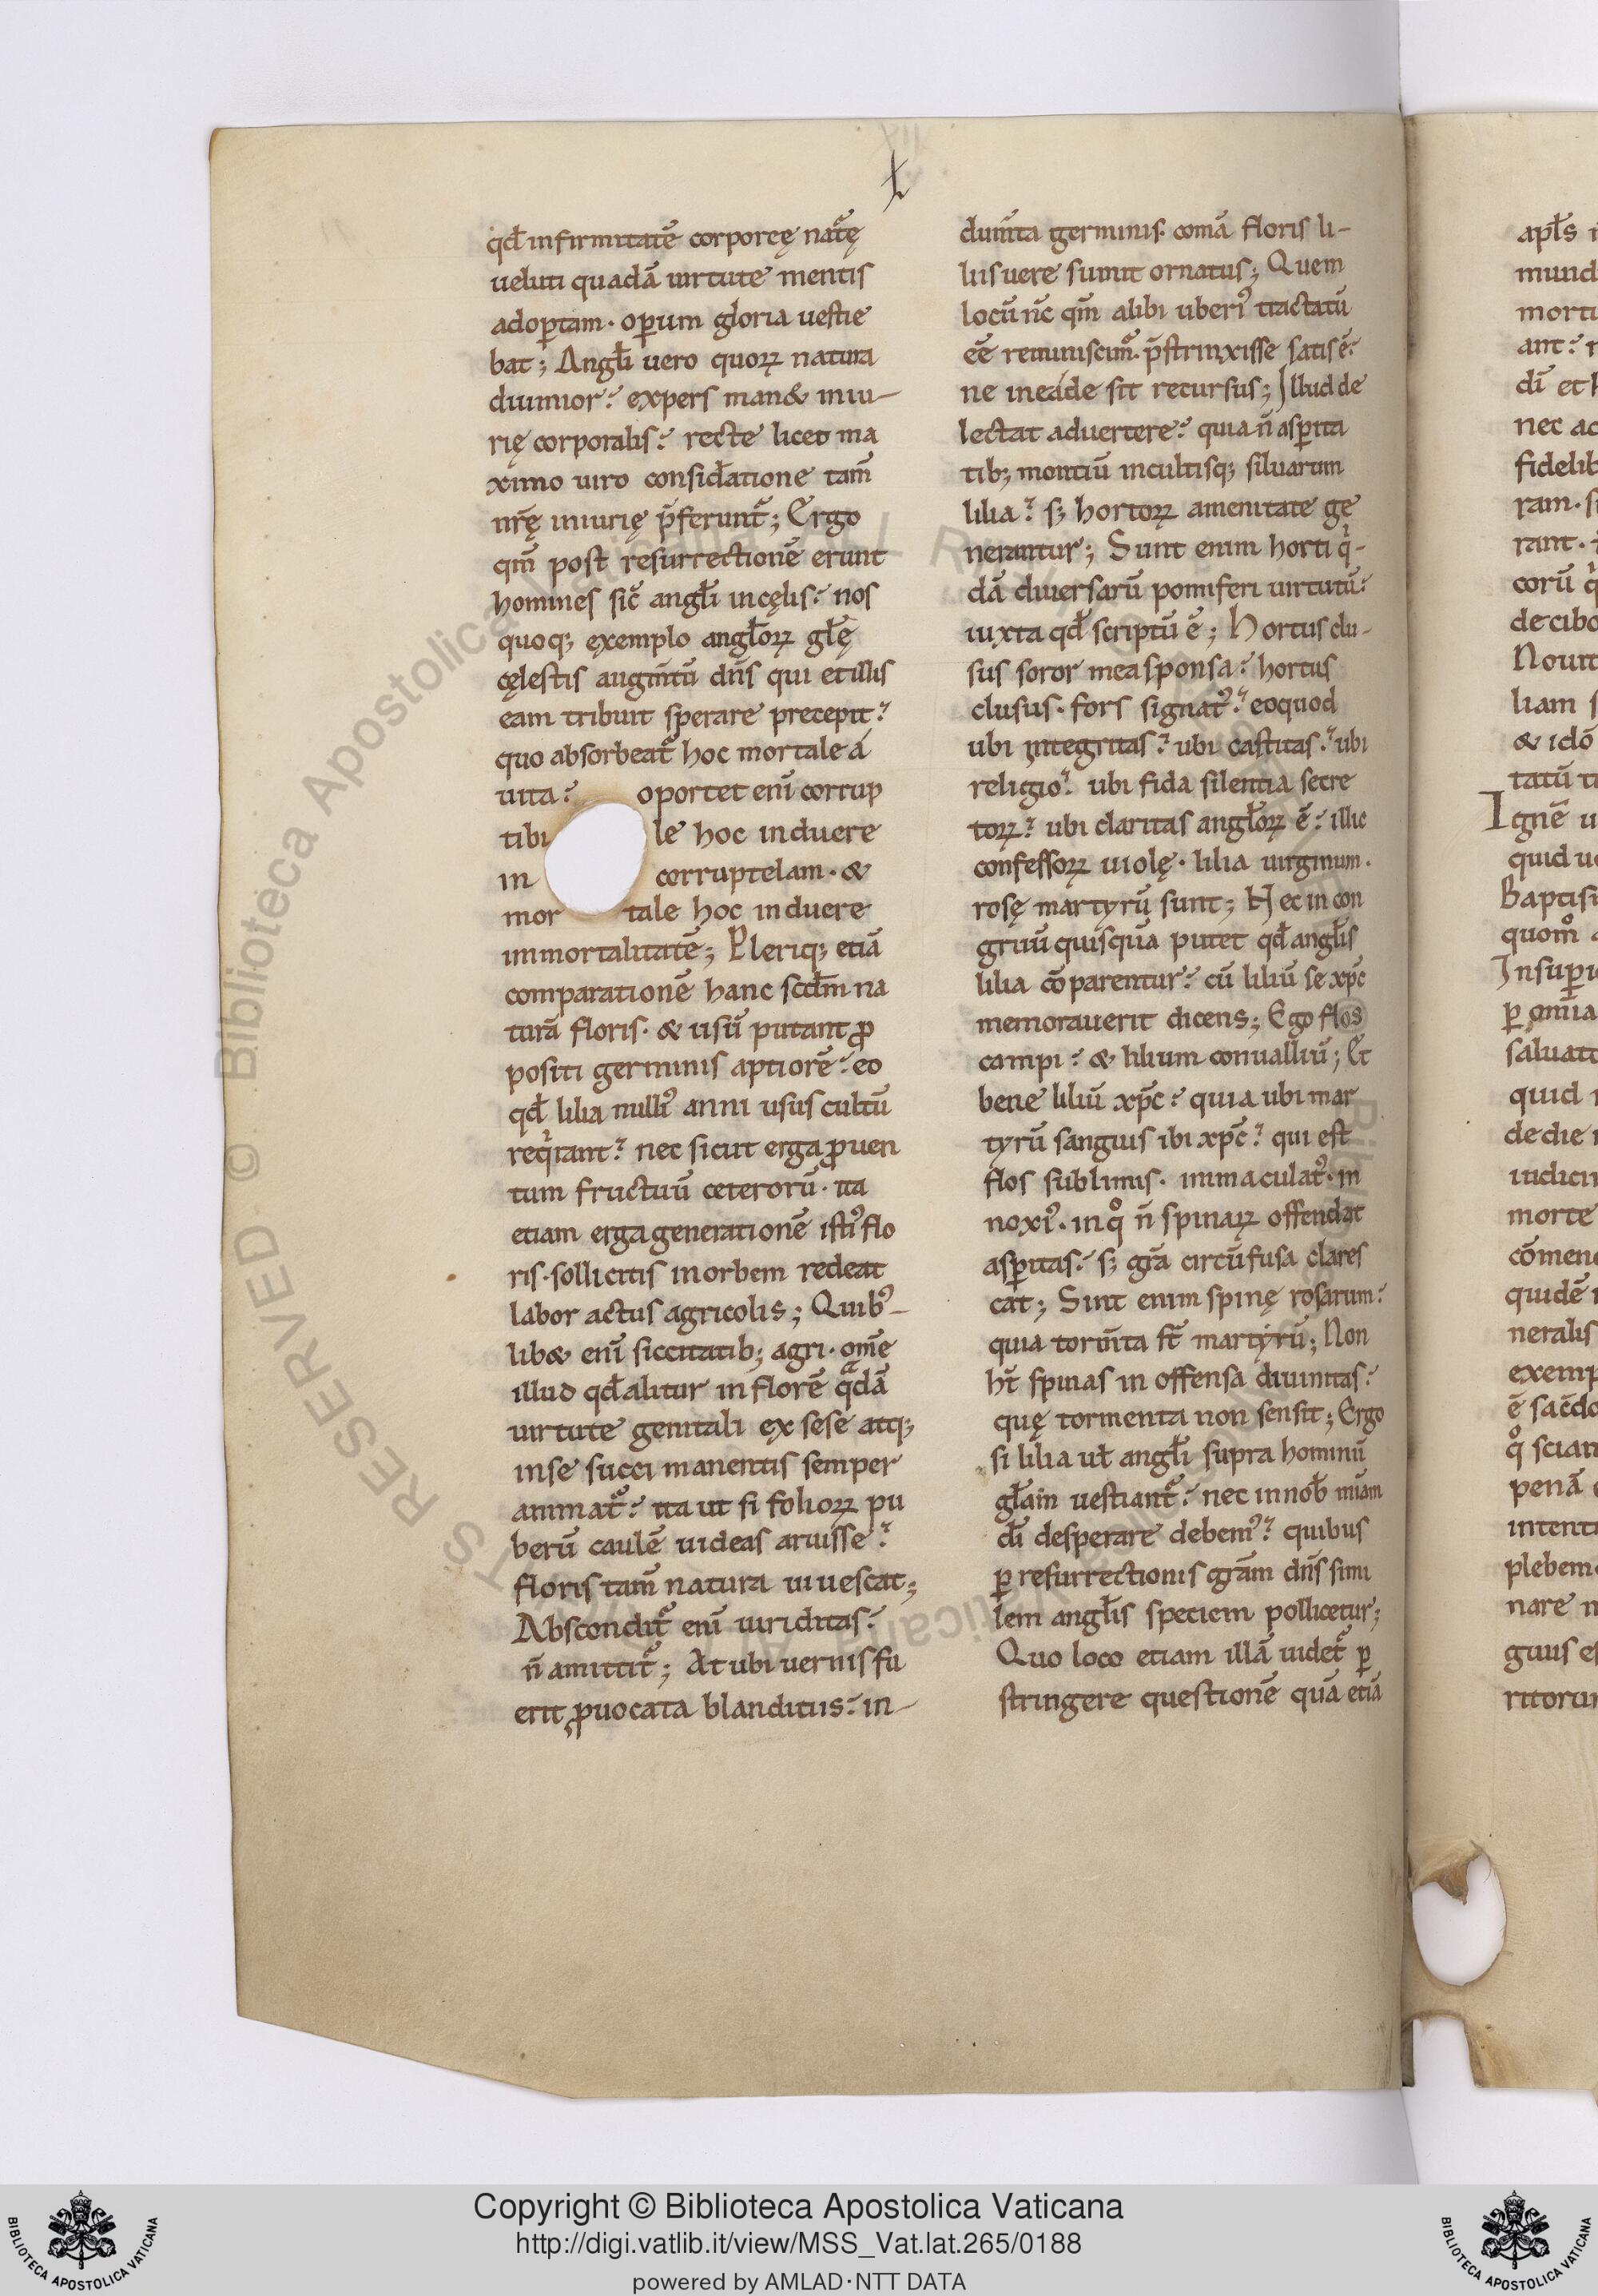 qđ infirmitatē corporeę nat̄ę
ueluti quadā uirtute mentis
adoptam · oꝑum gloria uestie
bat ; Angl̄i uero quoꝝ natura
diuinior ? expers man& iniu-
rię corporalis ? recte licet ma
ximo uiro considatione tam̄
nr̄ę iniurię p̄ferunt̄ ; Ergo
qm̄ post resurrectionē erunt
homines sic̄ angl̄i in cęlis ? nos
quoq; exemplo angl̄oꝝ gl̄ę
cęlestis augm̄tū dn̄s qui et illis
eam tribuit sperare precepit ?
quo absorbeat̄ hoc mortale á
uita ? oportet eni̅ corrup
tibi le hoc induere
in corruptelam · &
mor tale hoc induere
immortalitatē ; Pleriq; etiā
comparationē hanc scđm na
turā floris · & usū putant ꝓ
positi germinis aptiorē ? eo
qđ lilia nulliꝰ anni usus cultū
reqͥrant ? nec sicut erga ꝓuen
tum fructuū ceterorū · ita
etiam erga generationē istiꝰ flo
ris · sollicitis in orbem redeat
labor actus agricolis ; Quibꝰ-
lib& eni̅ siccitatib; agri · om̄e
illud qđ alitur in florē qᷓdā
uirtute genitali ex sese atq;
in se succi manentis semper
animat̄ ? ita ut si folioꝝ pu
berū caulē uideas aruisse ?
floris tam̄ natura uiuescat ;
Abscondit̄ eni̅ uiriditas ?
n̄ amittit̄ ; At ubi uernis fu
erit ꝓuocata blanditiis ? in-
dum̄ta germinis · comā floris li-
lii suere sumit ornatus ; Quem
locū nc̄ qm̄ alibi uberiꝰ tractatū
eē reminiscimꝰ · p̄strinxisse satis ē ?
ne in eáde sit recursus ; Illud de
lectat aduertere ? quia n̄ asꝑita
tib; montiū incultisq; siluarum
lilia ? s; hortoꝝ amenitate ge
nerantur ; Sunt enim horti qͥ-
dā diuersarū pomiferi uirtutū ?
iuxta qđ scriptū ē ; Hortus clu-
sus soror mea sponsa ? hortus
clusus · fors signatꝰ ? eo quod
ubi integritas ? ubi castitas ? ubi
religio ? ubi fida silentia secre
toꝝ ? ubi claritas angl̄oꝝ ē ? illic
confessoꝝ uiolę · lilia uirginum ·
rosę martyrū sunt ; Hec in con
gruū quisquā putet qđ angl̄is
lilia cōparentur ? cū liliū se xp̄c
memorauerit dicens ; Ego flos
campi ? & lilium conualliū ; Et
bene liliū xp̄c ? quia ubi mar
tyrū sanguis ibi xp̄c ? qui est
flos sublimis · immaculatꝰ · in
noxiꝰ · in qͦ n̄ spinaꝝ offendat
asꝑitas ? s; gr̄a circūfusa clares
cat ; Sint enim spinę rosarum ?
quia torm̄ta st̄ martyrū ; Non
ht̄ spinas in offensa diuinitas ?
quę tormenta non sensit ; Ergo
si lilia ul̄ angl̄i supra hominū
gl̄am uestiant̄ ? nec in nob̄ mi̅am
dī desperare debemꝰ ? quibus
ꝑ resurrectionis gr̄am dn̄s simi
lem angl̄is speciem pollicetur ;
Quo loco etiam illā uidet̄ ꝑ
stringere questionē quā etiā
apl̄s
mund
mortu
ant ?
dī et
nec ac
fidelib
ram · si
rant ·
corū q
de cibo
Nouit
liam s
& idō
tatū
Ignē u
quid u
Baptis
quom̄
Insuꝑ
ꝑ om̄ia
saluat
quid
de die
iudici
morte
cōmen
quidē
neralis
exemp
ē sac̄do
qͦ scian
penā
intent
plebem
nare n
guis es
ritoru
Copyright © Biblioteca Apostolica Vaticana
http://digi.vatlib.it/view/MSS_Vat.lat.265/0188
powered by AMLAD·NTT DATA
BIBLIOTECA APOSTOLICA VATICANA
BIBLIOTECA APOSTOLICA VATICANA